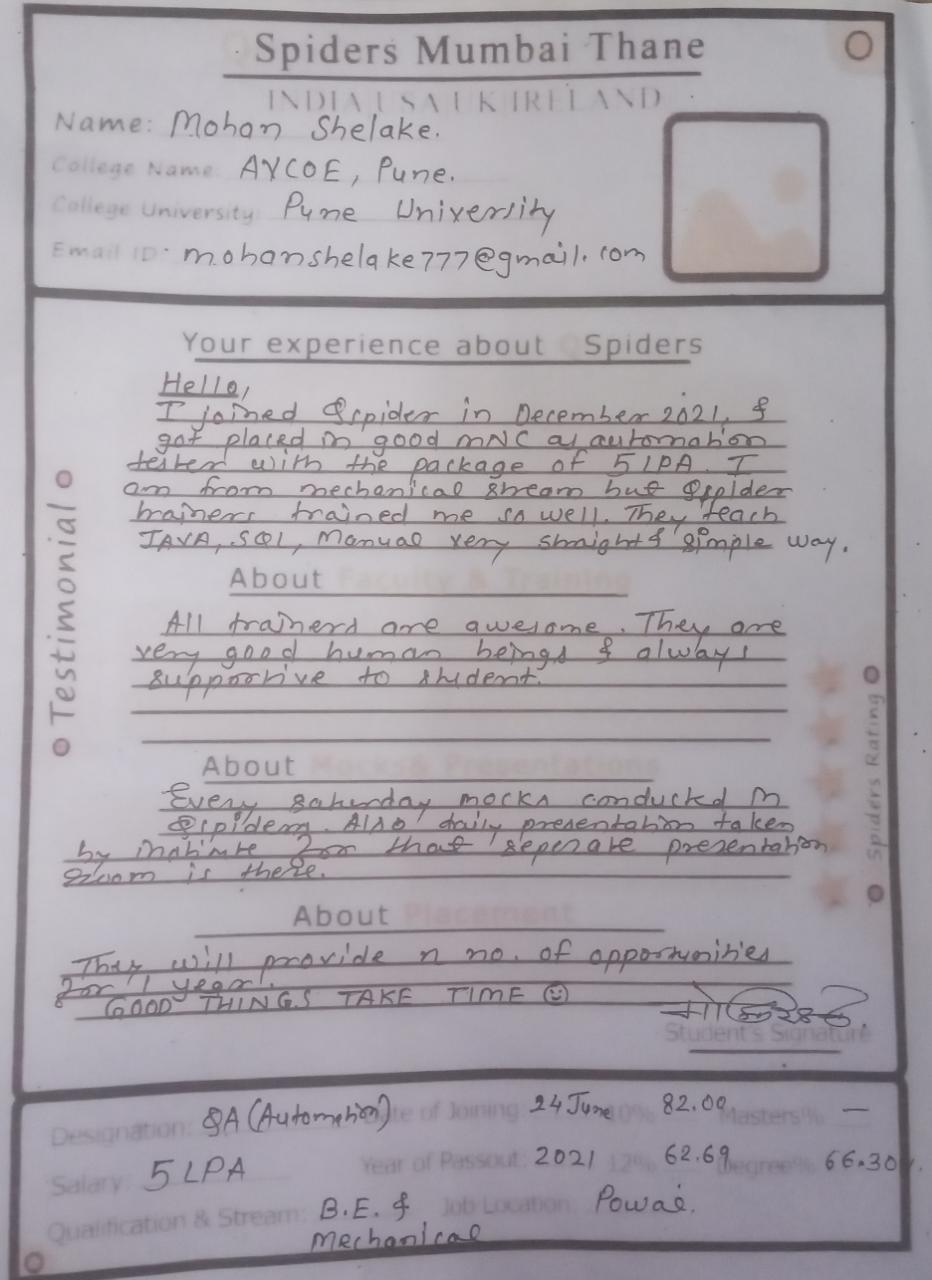 Spiders Mumbai Thane
INDIA USA UK IRELAND
Name: Mohan Shelake.
College Name: AVCOE, Pune.
College University: Pune University
Email ID: mohanshelake777@gmail.com
Your experience about QSpiders
Hello,
I joined Qspider in December 2021, &
got placed in good MNC as automation
tester with the package of 5 LPA. I
am from mechanical stream but Qspider
trainers trained me so well. They teach
JAVA, SQL, Manual very straight & simple way.
Testimonial
About Faculty & Training
All trainers are awesome. They are
very good human beings & always
supportive to student.
Spiders Rating
About Mocks& Presentations
Every saturday mocks conducted in
Qspiders. Also daily presentation taken
by institute for that seperate presentation
room is there.
About Placement
They will provide n no. of opportunities
for 1 year.
GOOD THINGS TAKE TIME ☺
Student's Signature
Designation: QA (Automation) Date of Joining: 24 June 10% 82.09 Masters% —
Salary: 5 LPA Year of Passout: 2021 12% 62.69 Degree% 66.30%.
Qualification & Stream: B.E. & Job Location: Powai.
Mechanical